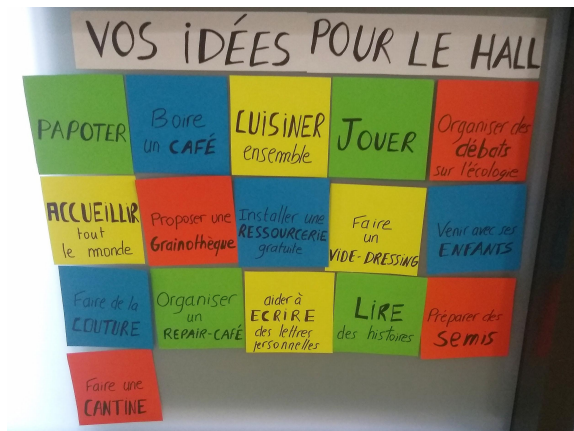 VOS IDÉES POUR LE HALL
PAPOTER
Boire
un CAFÉ
CUISINER
ensemble
JOUER
Organiser des
débats
sur l'écologie
ACCUEILLIR
tout
le monde
Proposer une
Grainothèque
Installer une
RESSOURCERIE
gratuite
Faire
un
VIDE-DRESSING
Venir avec ses
ENFANTS
Faire de la
COUTURE
Organiser
un
REPAIR-CAFÉ
aider à
ECRIRE
des lettres
personnelles
LIRE
des histoires
Préparer des
semis
Faire une
CANTINE